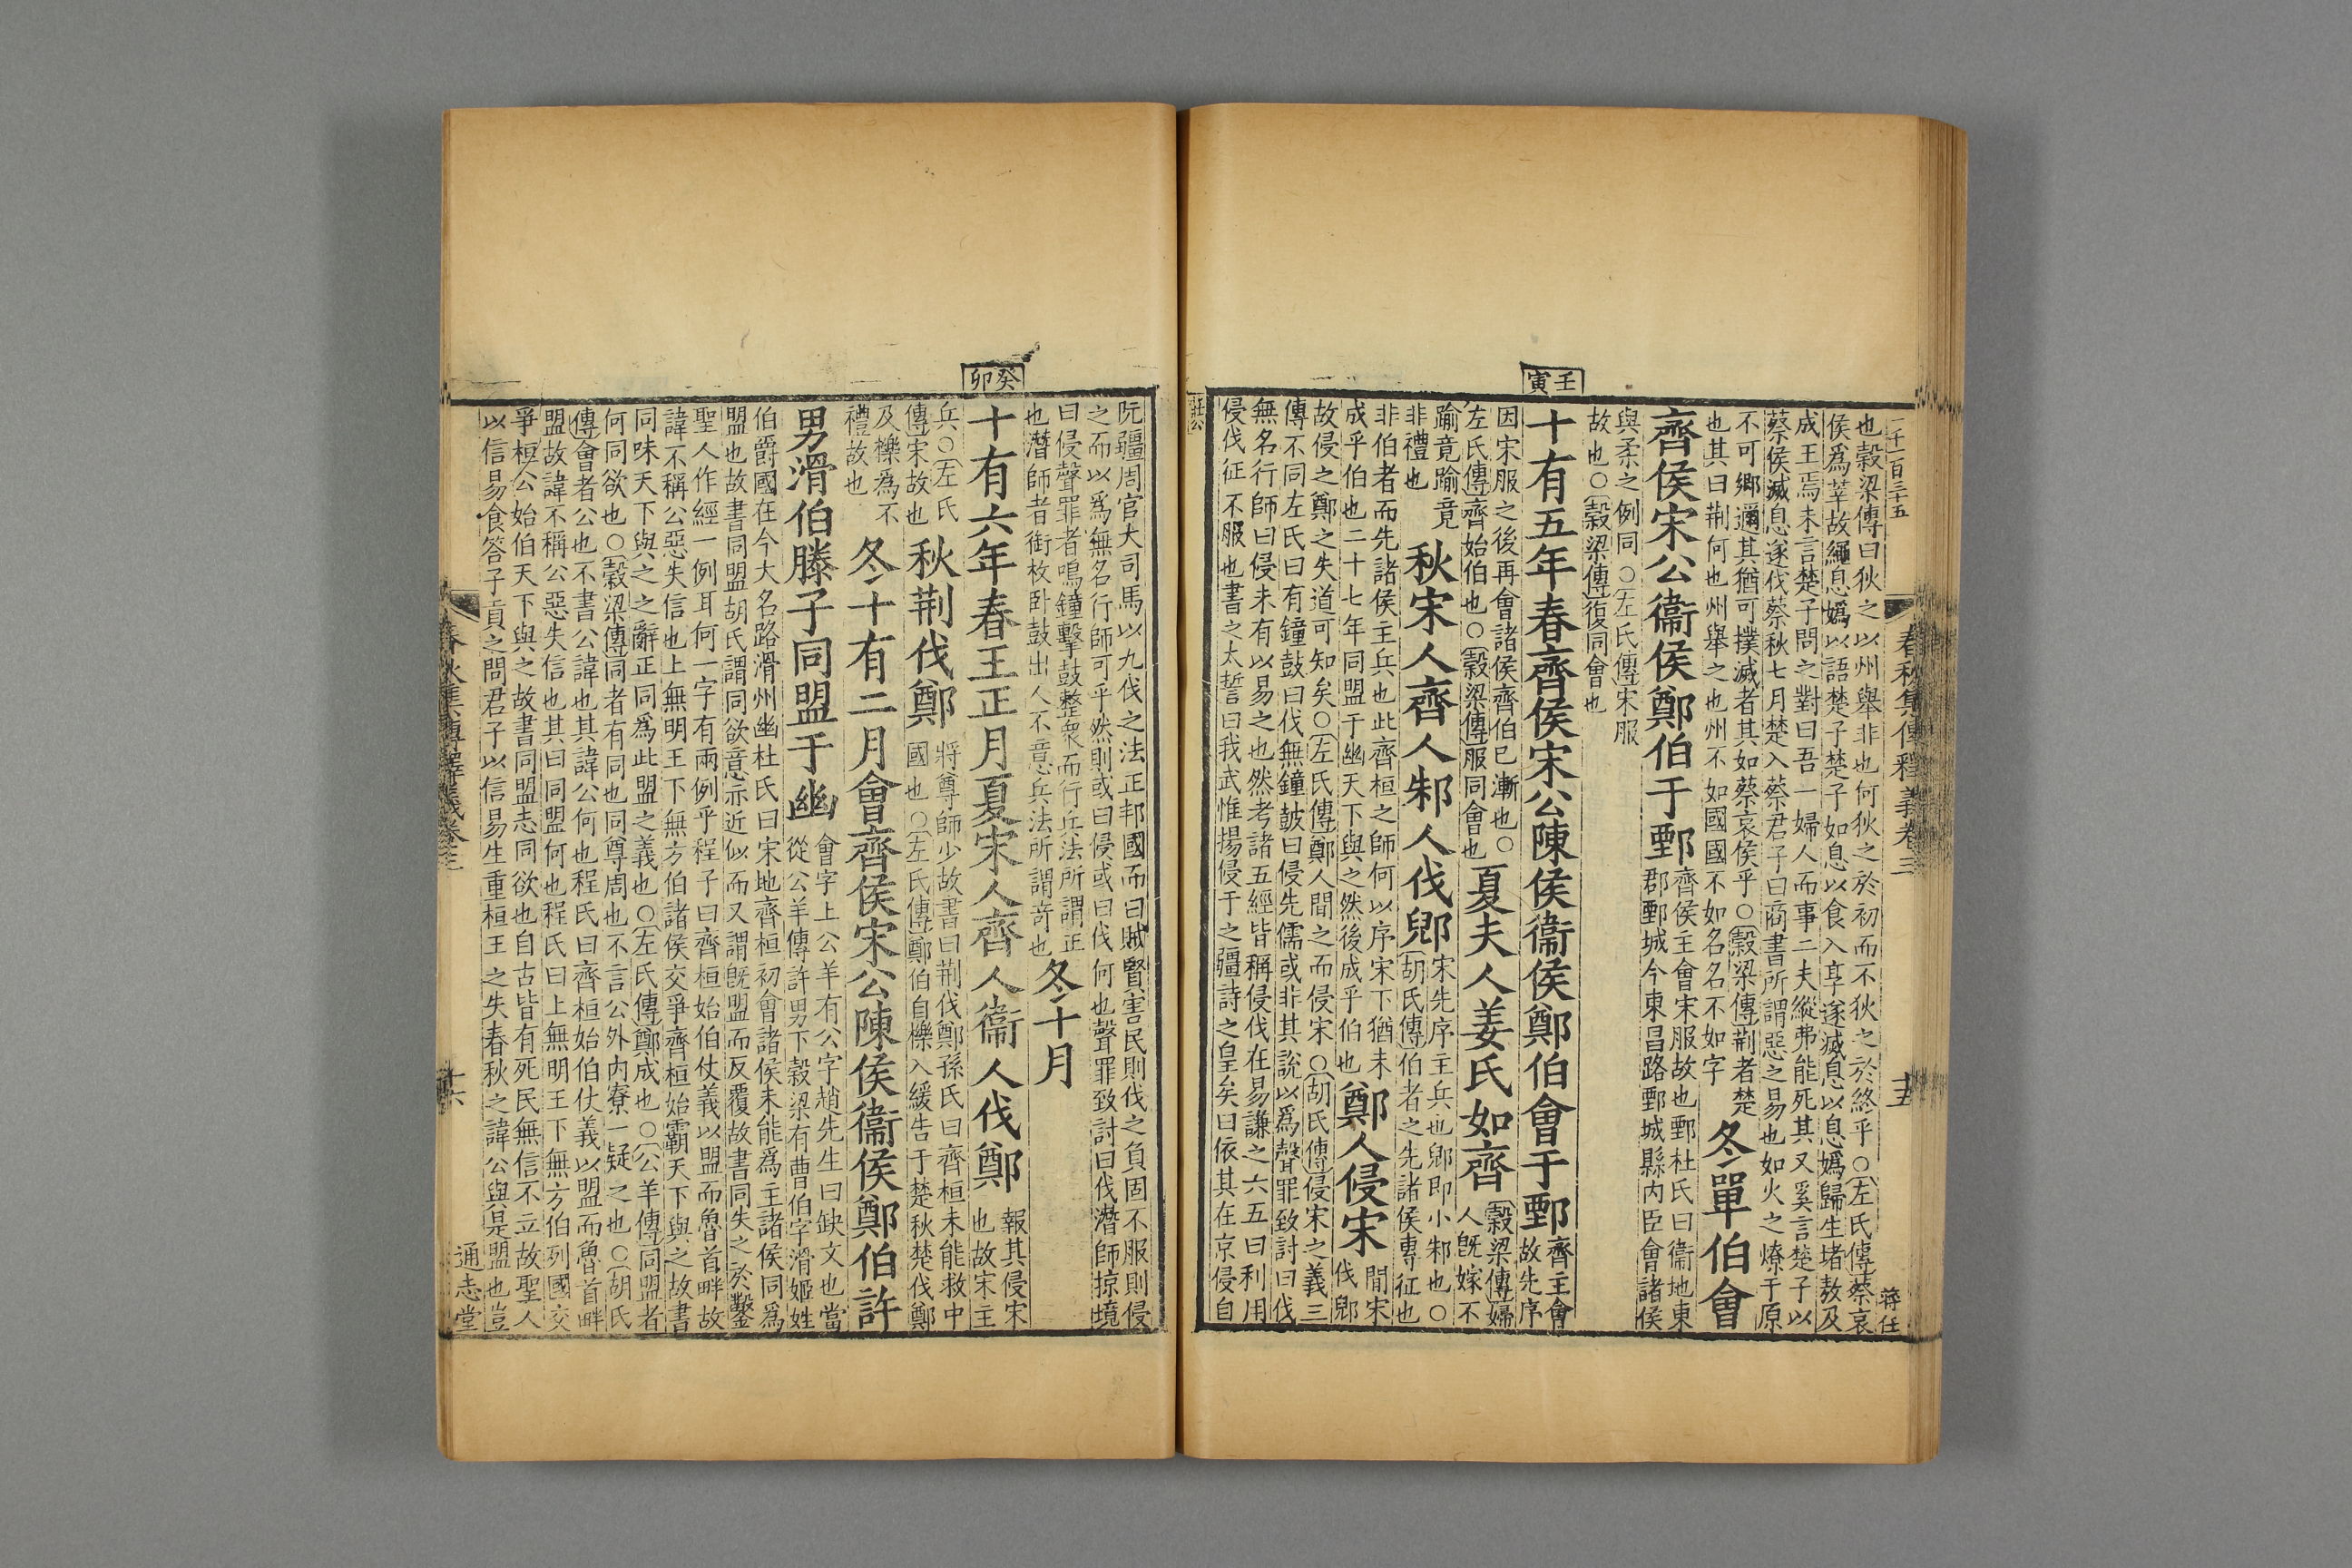 二千一百三十五
春秋集傳釋義卷三
十五
蔣任
也穀梁傳曰狄之以州舉非也何狄之於初而不狄之於終乎○左氏傳蔡哀
侯爲莘故繩息嬀以語楚子楚子如息以食入享遂滅息以息嬀歸生堵敖及
成王焉未言楚子問之對曰吾一婦人而事二夫縱弗能死其又奚言楚子以
蔡侯滅息遂伐蔡秋七月楚入蔡君子曰商書所謂惡之易也如火之燎于原
不可鄉邇其猶可撲滅者其如蔡哀侯乎○穀梁傳荆者楚
也其曰荆何也州舉之也州不如國國不如名名不如字
冬單伯會
齊侯宋公衞侯鄭伯于鄄
齊侯主會宋服故也鄄杜氏曰衞地東
郡鄄城今東昌路鄄城縣内臣會諸侯
與柔之例同○左氏傳宋服
故也○穀梁傳復同會也
壬寅
十有五年春齊侯宋公陳侯衞侯鄭伯會于鄄
齊主會
故先序
因宋服之後再會諸侯齊伯已漸也○
左氏傳齊始伯也○穀梁傳服同會也
夏夫人姜氏如齊
穀梁傳婦
人旣嫁不
踰竟踰竟
非禮也
秋宋人齊人邾人伐郳
宋先序主兵也郳即小邾也○
胡氏傳伯者之先諸侯專征也
非伯者而先諸侯主兵也此齊桓之師何以序宋下猶未
成乎伯也二十七年同盟于幽天下與之然後成乎伯也
鄭人侵宋
間宋
伐郳
故侵之鄭之失道可知矣○左氏傳鄭人間之而侵宋○胡氏傳侵宋之義三
傳不同左氏曰有鐘鼓曰伐無鐘鼓曰侵先儒或非其說以爲聲罪致討曰伐
無名行師曰侵未有以易之也然考諸五經皆稱侵伐在易謙之六五曰利用
侵伐征不服也書之太誓曰我武惟揚侵于之疆詩之皇矣曰依其在京侵自
莊公
阮疆周官大司馬以九伐之法正邦國而曰賊賢害民則伐之負固不服則侵
之而以爲無名行師可乎然則或曰侵或曰伐何也聲罪致討曰伐潛師掠境
曰侵聲罪者鳴鐘擊鼓整衆而行兵法所謂正
也潛師者銜枚卧鼓出人不意兵法所謂奇也
冬十月
癸卯
十有六年春王正月夏宋人齊人衞人伐鄭
報其侵宋
也故宋主
兵○左氏
傳宋故也
秋荆伐鄭
將尊師少故書曰荆伐鄭孫氏曰齊桓未能救中
國也○左氏傳鄭伯自櫟入緩告于楚秋楚伐鄭
及櫟爲不
禮故也
冬十有二月會齊侯宋公陳侯衞侯鄭伯許
男滑伯滕子同盟于幽
會字上公羊有公字趙先生曰缺文也當
從公羊傳許男下穀梁有曹伯字滑姬姓
伯爵國在今大名路滑州幽杜氏曰宋地齊桓初會諸侯未能爲主諸侯同爲
盟也故書同盟胡氏謂同欲意示近似而又謂旣盟而反覆故書同失之於鑿
聖人作經一例耳何一字有兩例乎程子曰齊桓始伯仗義以盟而魯首畔故
諱不稱公惡失信也上無明王下無方伯諸侯交爭齊桓始霸天下與之故書
同同昧天下與之之辭正同爲此盟之義也○左氏傳鄭成也○公羊傳同盟者
何同欲也○穀梁傳同者有同也同尊周也不言公外内寮一疑之也○胡氏
傳會者公也不書公諱也其諱公何也程氏曰齊桓始伯仗義以盟而魯首畔
盟故諱不稱公惡失信也其曰同盟何也程氏曰上無明王下無方伯列國交
爭桓公始伯天下與之故書同盟志同欲也自古皆有死民無信不立故聖人
以信易食答子貢之問君子以信易生重桓王之失春秋之諱公與是盟也豈
春秋集傳釋義卷三
十六
通志堂